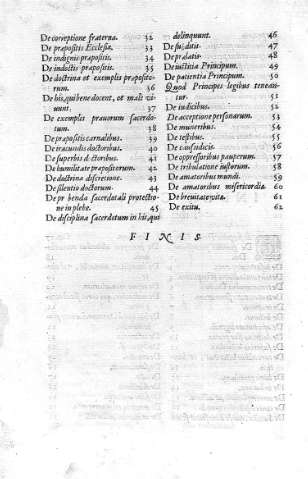 De correptione fraterna. 32
De præpositis Ecclesiæ. 33
De indignis præpositis. 34
De indoctis præpositis. 35
De doctrina et exemplis præposito-
rum. 36
De his, qui bene docent, et male vi-
uunt. 37
De exemplis prauorum sacerdo-
tum. 38
De præpositis carnalibus. 39
De iracundis doctoribus. 40
De superbis doctoribus. 41
De humilitate præpositorum. 42
De doctrina discretione. 43
De silentio doctorum. 44
De præbenda sacerdotali protectio-
ne in plebe. 45
De disciplina sacerdotum in his, qui
delinquunt. 46
De subditis. 47
De prælatis. 48
De iustitia Principum. 49
De patientia Principum. 50
Quod Principes legibus tenean-
tur. 51
De iudicibus. 52
De acceptione personarum. 53
De muneribus. 54
De testibus. 55
De causidicis. 56
De oppressoribus pauperum. 57
De tribulatione iustorum. 58
De amatoribus mundi. 59
De amatoribus misericordiæ. 60
De breuitate vitæ. 61
De exitu. 62
FINIS.